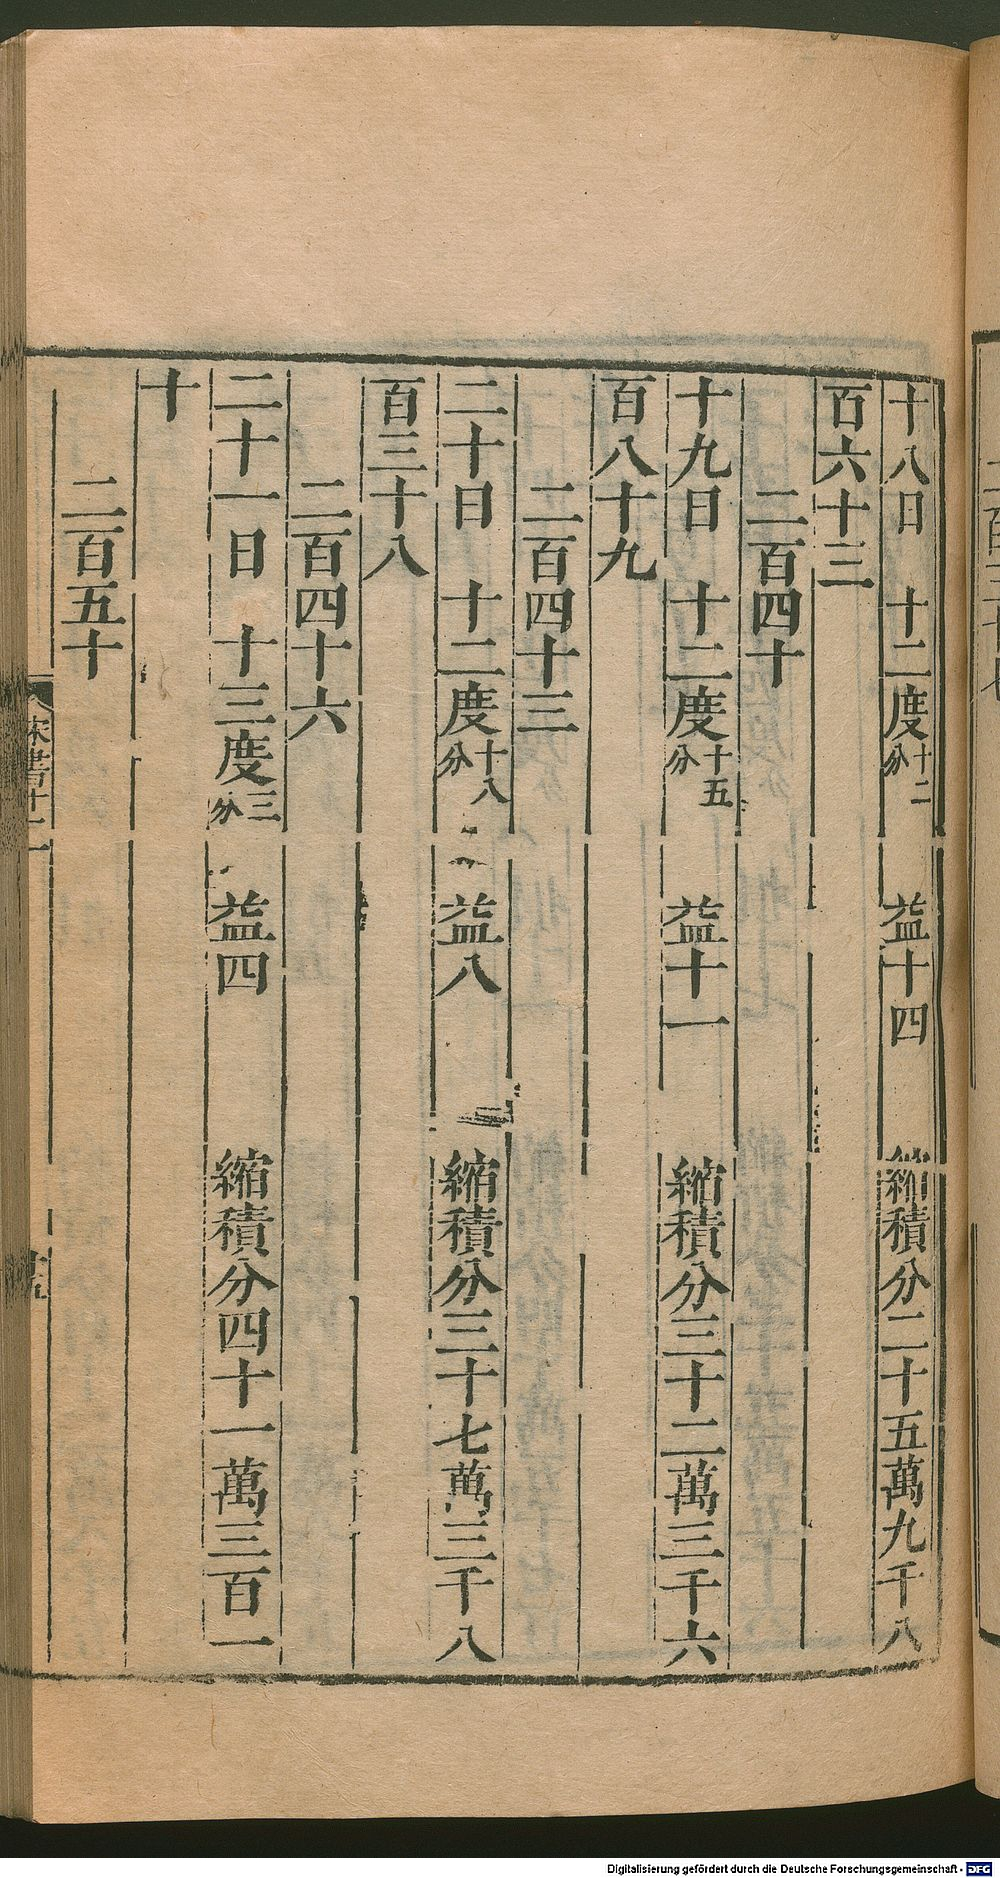 十八日　十二度十二分　益十四　縮積分二十五萬九千八
百六十三
二百四十
十九日　十二度十五分　益十一　縮積分三十二萬三千六
百八十九
二百四十三
二十日　十二度十八分　益八　縮積分三十七萬三千八
百三十八
二百四十六
二十一日　十三度三分　益四　縮積分四十一萬三百一
十
二百五十
宋書十二
Digitalisierung gefördert durch die Deutsche Forschungsgemeinschaft - DFG